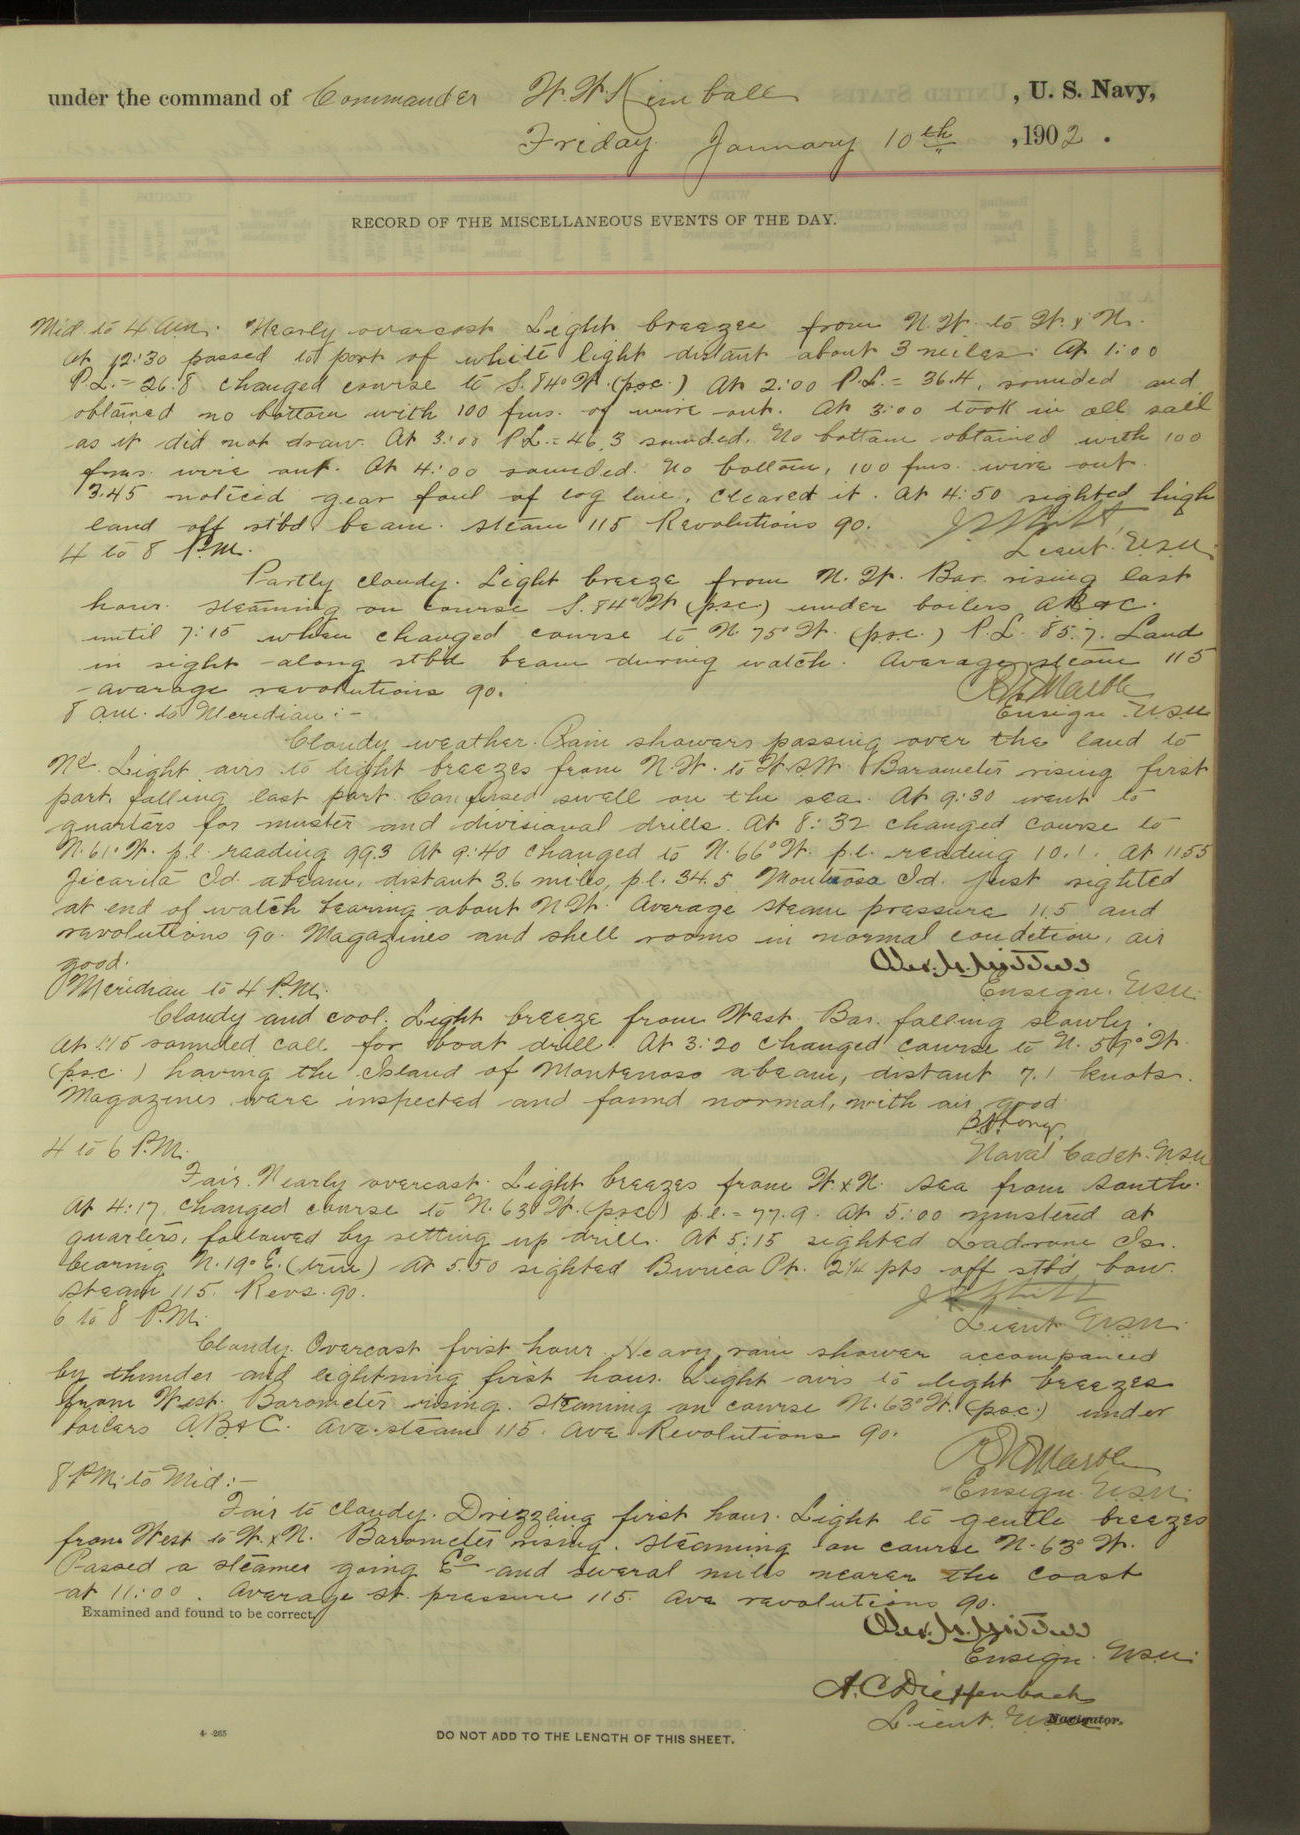 under the command of Commander W. W. Kimball, U. S. Navy,
Friday January 10th, 1902.
RECORD OF THE MISCELLANEOUS EVENTS OF THE DAY.
Mid. to 4 a.m. Nearly overcast Light breezes from N.W. to W. x N.
At 12:30 passed to port of white light distant about 3 miles. At 1:00
P.L. = 26.8 changed course to S. 84° W. (psc.) At 2:00 P.L. = 36.4, sounded and
obtained no bottom with 100 fms. of wire out. At 3:00 took in all sail
as it did not draw. At 3:00 P.L. = 46.3 sounded. No bottom obtained with 100
fms. wire out. At 4:00 sounded. No bottom, 100 fms. wire out.
3.45 noticed gear foul of log line, cleared it. At 4:50 sighted high
land off stbd beam. Steam 115 Revolutions 90.
Lieut. U.S.N.
4 to 8 P.M.
Partly cloudy. Light breeze from N. W. Bar rising last
hour. Steaming on course S. 84° W (p.s.c.) under boilers A B & C.
until 7:15 when changed course to N. 75° W. (p.s.c.) P.L. 85.7. Land
in sight along stbd beam during watch. Average steam 115
average revolutions 90.
Ensign U.S.N
8 a.m. to Meridian :-
Cloudy weather. Rain showers passing over the land to
Nd. Light airs to light breezes from N.W. to W.S.W. Barometer rising first
part, falling last part. Confused swell on the sea. At 9:30 went to
quarters for muster and divisional drills. At 8:32 changed course to
N. 61° W. p.l. reading 99.3 At 9:40 changed to N. 66° W. p.l. reading 10.1. At 1155
Jicarita Id. abeam, distant 3.6 miles, p.l. 34.5 Montuosa Id. just sighted
at end of watch bearing about NW. Average steam pressure 115 and
revolutions 90. Magazines and shell rooms in normal condition, air
good.
Ensign. U.S.N.
Meridian to 4 P.M.
Cloudy and cool. Light breeze from West. Bar. falling slowly.
At 1:15 sounded call for boat drill. At 3:20 changed course to N. 59° W.
(p.s.c.) having the Island of Montenoso abeam, distant 7.1 knots.
Magazines were inspected and found normal, with air good
Naval Cadet. U.S.N
4 to 6 P.M.
Fair. Nearly overcast. Light breezes from W. x N. Sea from South.
At 4:17 changed course to N. 63° W. (psc) p.l. = 77.9. At 5:00 mustered at
quarters, followed by setting up drill. At 5:15 sighted Ladrone Is.
bearing N. 19° E. (true) At 5.50 sighted Burica Pt. 2¼ pts off stb'd bow.
Steam 115. Revs. 90.
Lieut U.S.N.
6 to 8 P.M.
Cloudy. Overcast first hour. Heavy rain shower accompanied
by thunder and lightning first hour. Light airs to light breezes
from West. Barometer rising. Steaming on course N. 63° W. (p.s.c.) under
boilers A. B & C. Ave. steam 115. Ave Revolutions 90.
Ensign U.S.N.
8 P.M. to Mid :-
Fair to cloudy. Drizzling first hour. Light to gentle breezes
from West to W. x N. Barometer rising. Steaming on course N. 63° W.
Passed a steamer going Ed and several miles nearer the coast
at 11:00. Average st. pressure 115. Ave revolutions 90.
Examined and found to be correct.
Ensign. U.S.N.
A. C. Dieffenbach
Lieut. U.S.N. Navigator.
4-265
DO NOT ADD TO THE LENGTH OF THIS SHEET.